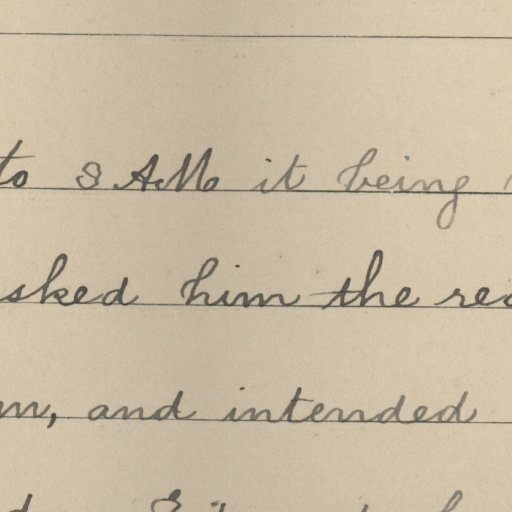 to 8 AM it being
sked him the rea
m, and intended